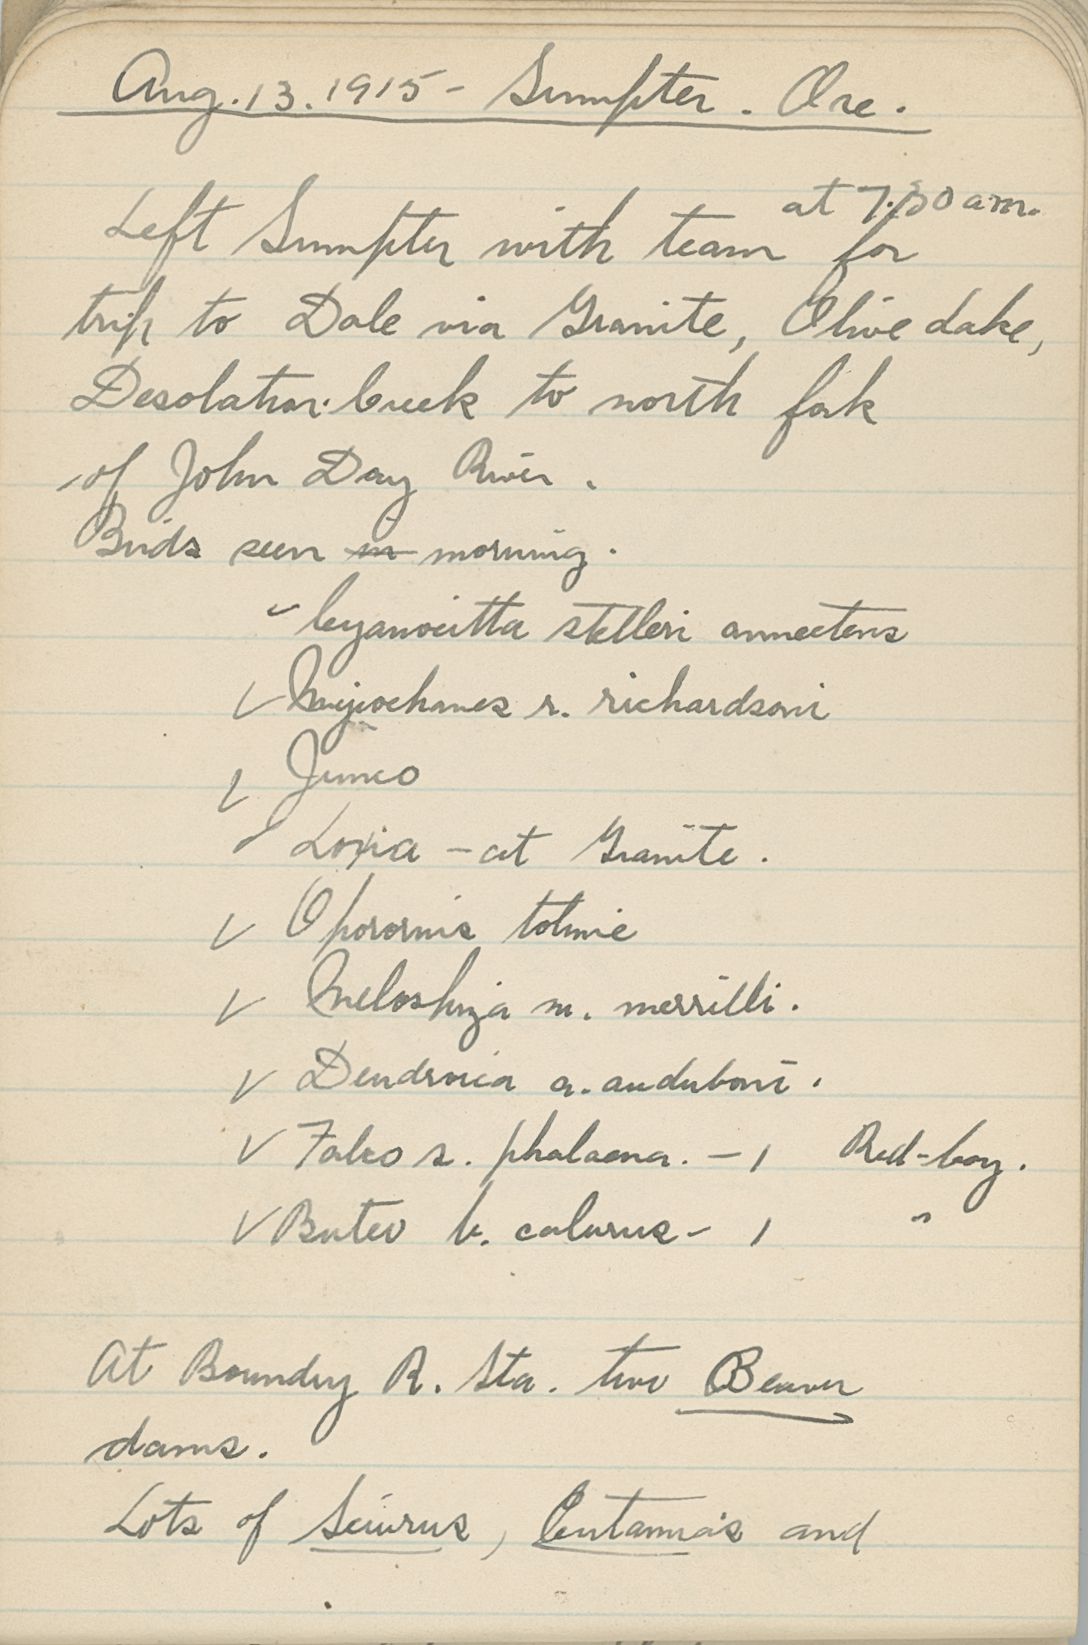 Aug. 13. 1915 - Sumpter. Ore.
at 7:30 a.m.
Left Sumpter with team for
trip to Dale via Granite, Olive Lake,
Desolation Creek to north fork
of John Day River.
Birds seen in morning.
✓ Cyanocitta stelleri annectens
✓ Myiochanes r. richardsoni
✓ Junco
✓ Loxia - at Granite.
✓ Oporornis tolmie
✓ Melospiza m. merrilli.
✓ Dendroica a. auduboni.
✓ Falco s. phalaena. - 1 Red-boy.
✓ Buteo b. calurus - 1 "
At Boundry R. Sta. two Beaver
dams.
Lots of Sciurus, Eutamias and